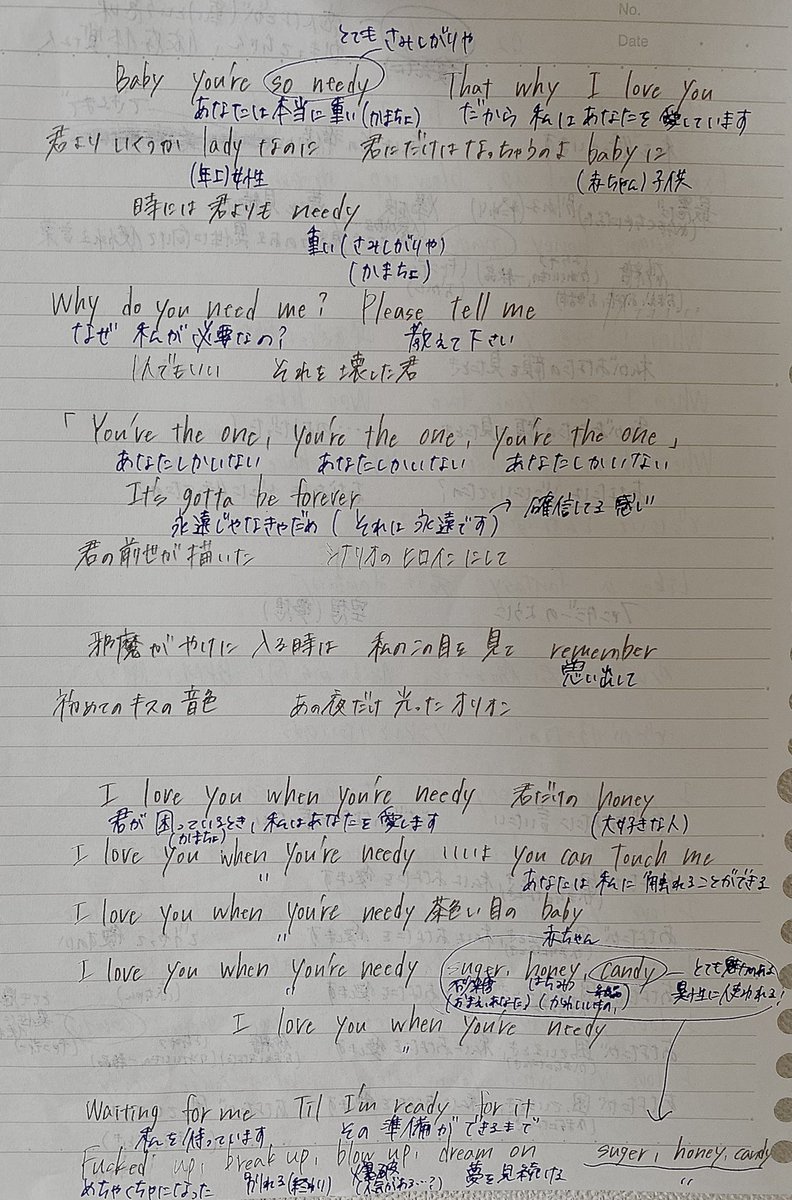 No.
Date
とても さみしがりや
Baby you're so needy That why I love you
あなたは本当に重い(かまちょ) だから 私は あなたを 愛しています
君より いくつか lady なのに 君にだけは なっちゃうのよ baby に
(年上)女性 (赤ちゃん)子供
時には 君よりも needy
重い(さみしがりや)
(かまちょ)
Why do you need me? Please tell me
なぜ 私が 必要なの? 教えて下さい
1人でもいい それを 壊した君
「You're the one, you're the one, you're the one」
あなたしかいない あなたしかいない あなたしかいない
It's gotta be forever
永遠じゃなきゃだめ (それは 永遠です) → 確信してる 感じ
君の前世が描いた シナリオのヒロインにして
邪魔がやけに 入る時は 私のこの目を 見て remember
思い出して
初めてのキスの音色 あの夜だけ 光ったオリオン
I love you when you're needy 君だけの honey
君が 困っているとき、私はあなたを愛します (大好きな人)
(かまちょ)
I love you when you're needy いいよ you can touch me
〃 あなたは 私に 触れることができる
I love you when you're needy 茶色い目の baby
〃 赤ちゃん
I love you when you're needy suger, honey, candy とても魅力的な
〃 お砂糖 はちみつ 異性に使われる!
(おまえ、あなた) (かわいいもの,
I love you when you're needy
〃
Waiting for me Til I'm ready for it
私を待っています その 準備ができるまで
Fucked up, break up, blow up, dream on suger, honey, candy
めちゃくちゃになった 別れる(終わり) 爆破 夢を見続ける 〃
(人気がある…?)